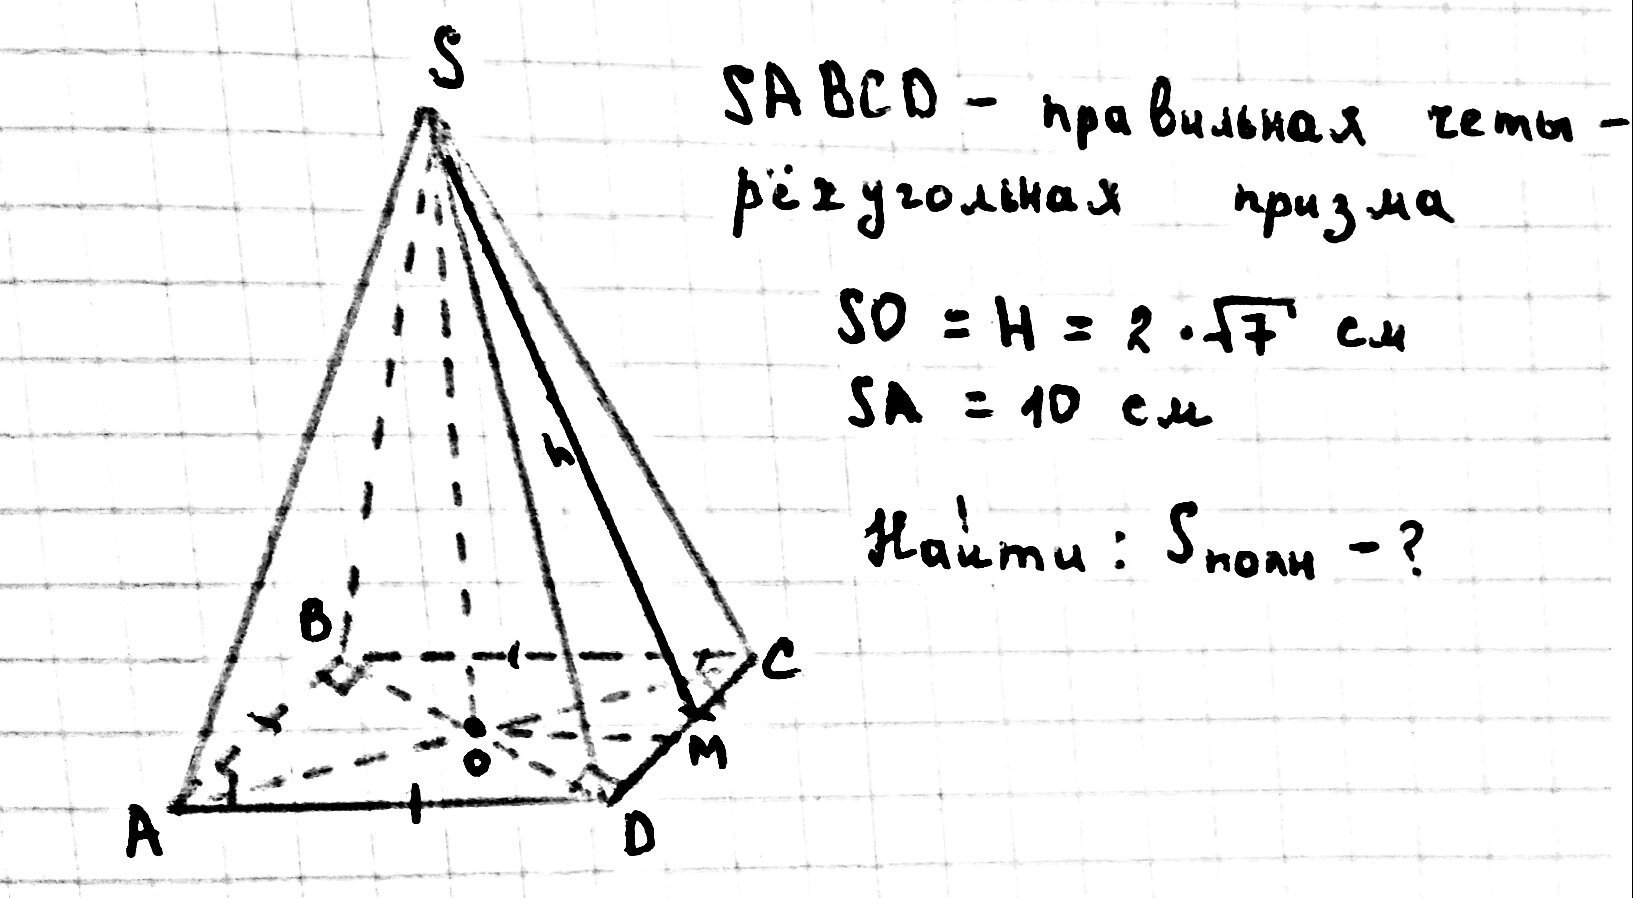 S
SABCD - правильная четы-
рёхугольная призма
SO = H = 2 · √7 см
SA = 10 см
h
Найти: Sполн - ?
B
C
O
M
A
D